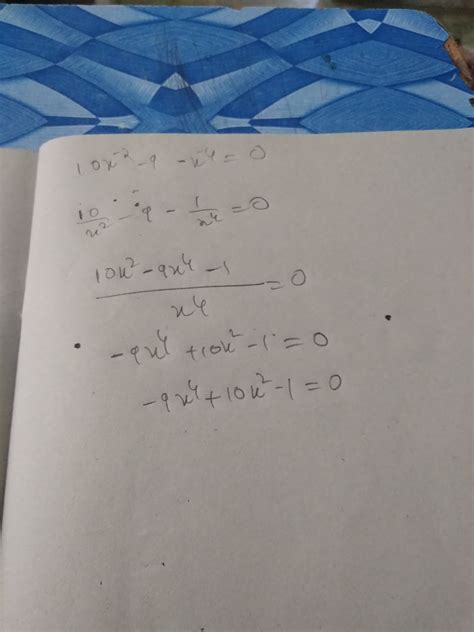 10x⁻² - 9 - x⁻⁴ = 0
10/x² - 9 - 1/x⁴ = 0
(10x² - 9x⁴ - 1)/x⁴ = 0
-9x⁴ + 10x² - 1 = 0
-9x⁴ + 10x² - 1 = 0